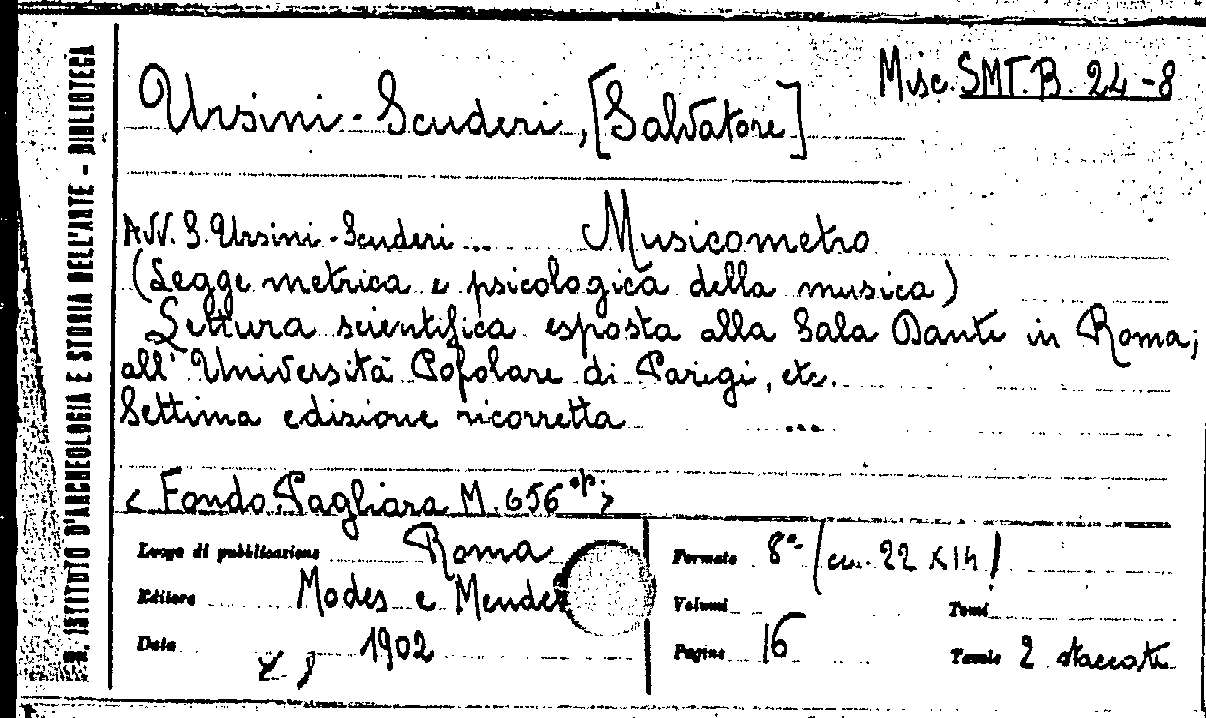 Misc. SMT.B. 24-8
Ursini-Scuderi, [Salvatore]
Avv. S. Ursini-Scuderi ... Musicometro
(Legge metrica e psicologica della musica)
Lettura scientifica esposta alla Sala Dante in Roma;
all' Università Popolare di Parigi, etc.
Settima edizione ricorretta ...
< Fondo Pagliara M. 656 op. >
Luogo di pubblicazione Roma
Editore Modes e Mendel
Data 1902
Formato 8° (cm. 22 x 14)
Volumi Tomi
Pagine 16 Tavole 2 staccate
R. ISTITUTO D'ARCHEOLOGIA E STORIA DELL'ARTE - BIBLIOTECA